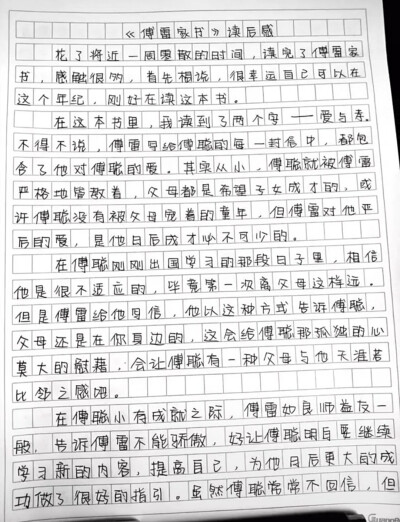 《傅雷家书》读后感
花了将近一周零散的时间，读完了傅雷家
书，感触很多，首先想说，很幸运自己可以在
这个年纪，刚好在读这本书。
在这本书里，我读到了两个字——爱与孝。
不得不说，傅雷写给傅聪的每一封信中，都包
含了他对傅聪的爱。其实从小，傅聪就被傅雷
严格地管教着，父母都是希望子女成才的，或
许傅聪没有被父母宠着的童年，但傅雷对他严
后的爱，是他日后成才必不可少的。
在傅聪刚刚出国学习的那段日子里，相信
他是很不适应的，毕竟第一次离父母这样远。
但是傅雷给他写信，他以这种方式告诉傅聪，
父母还是在你身边的，这会给傅聪那孤独的心
莫大的慰藉，会让傅聪有一种父母与他天涯若
比邻之感吧。
在傅聪小有成就之际，傅雷如良师益友一
般，告诉傅雷不能骄傲，好让傅聪明白要继续
学习新的内容，提高自己，为他日后更大的成
功做了很好的指引。虽然傅聪常常不回信，但